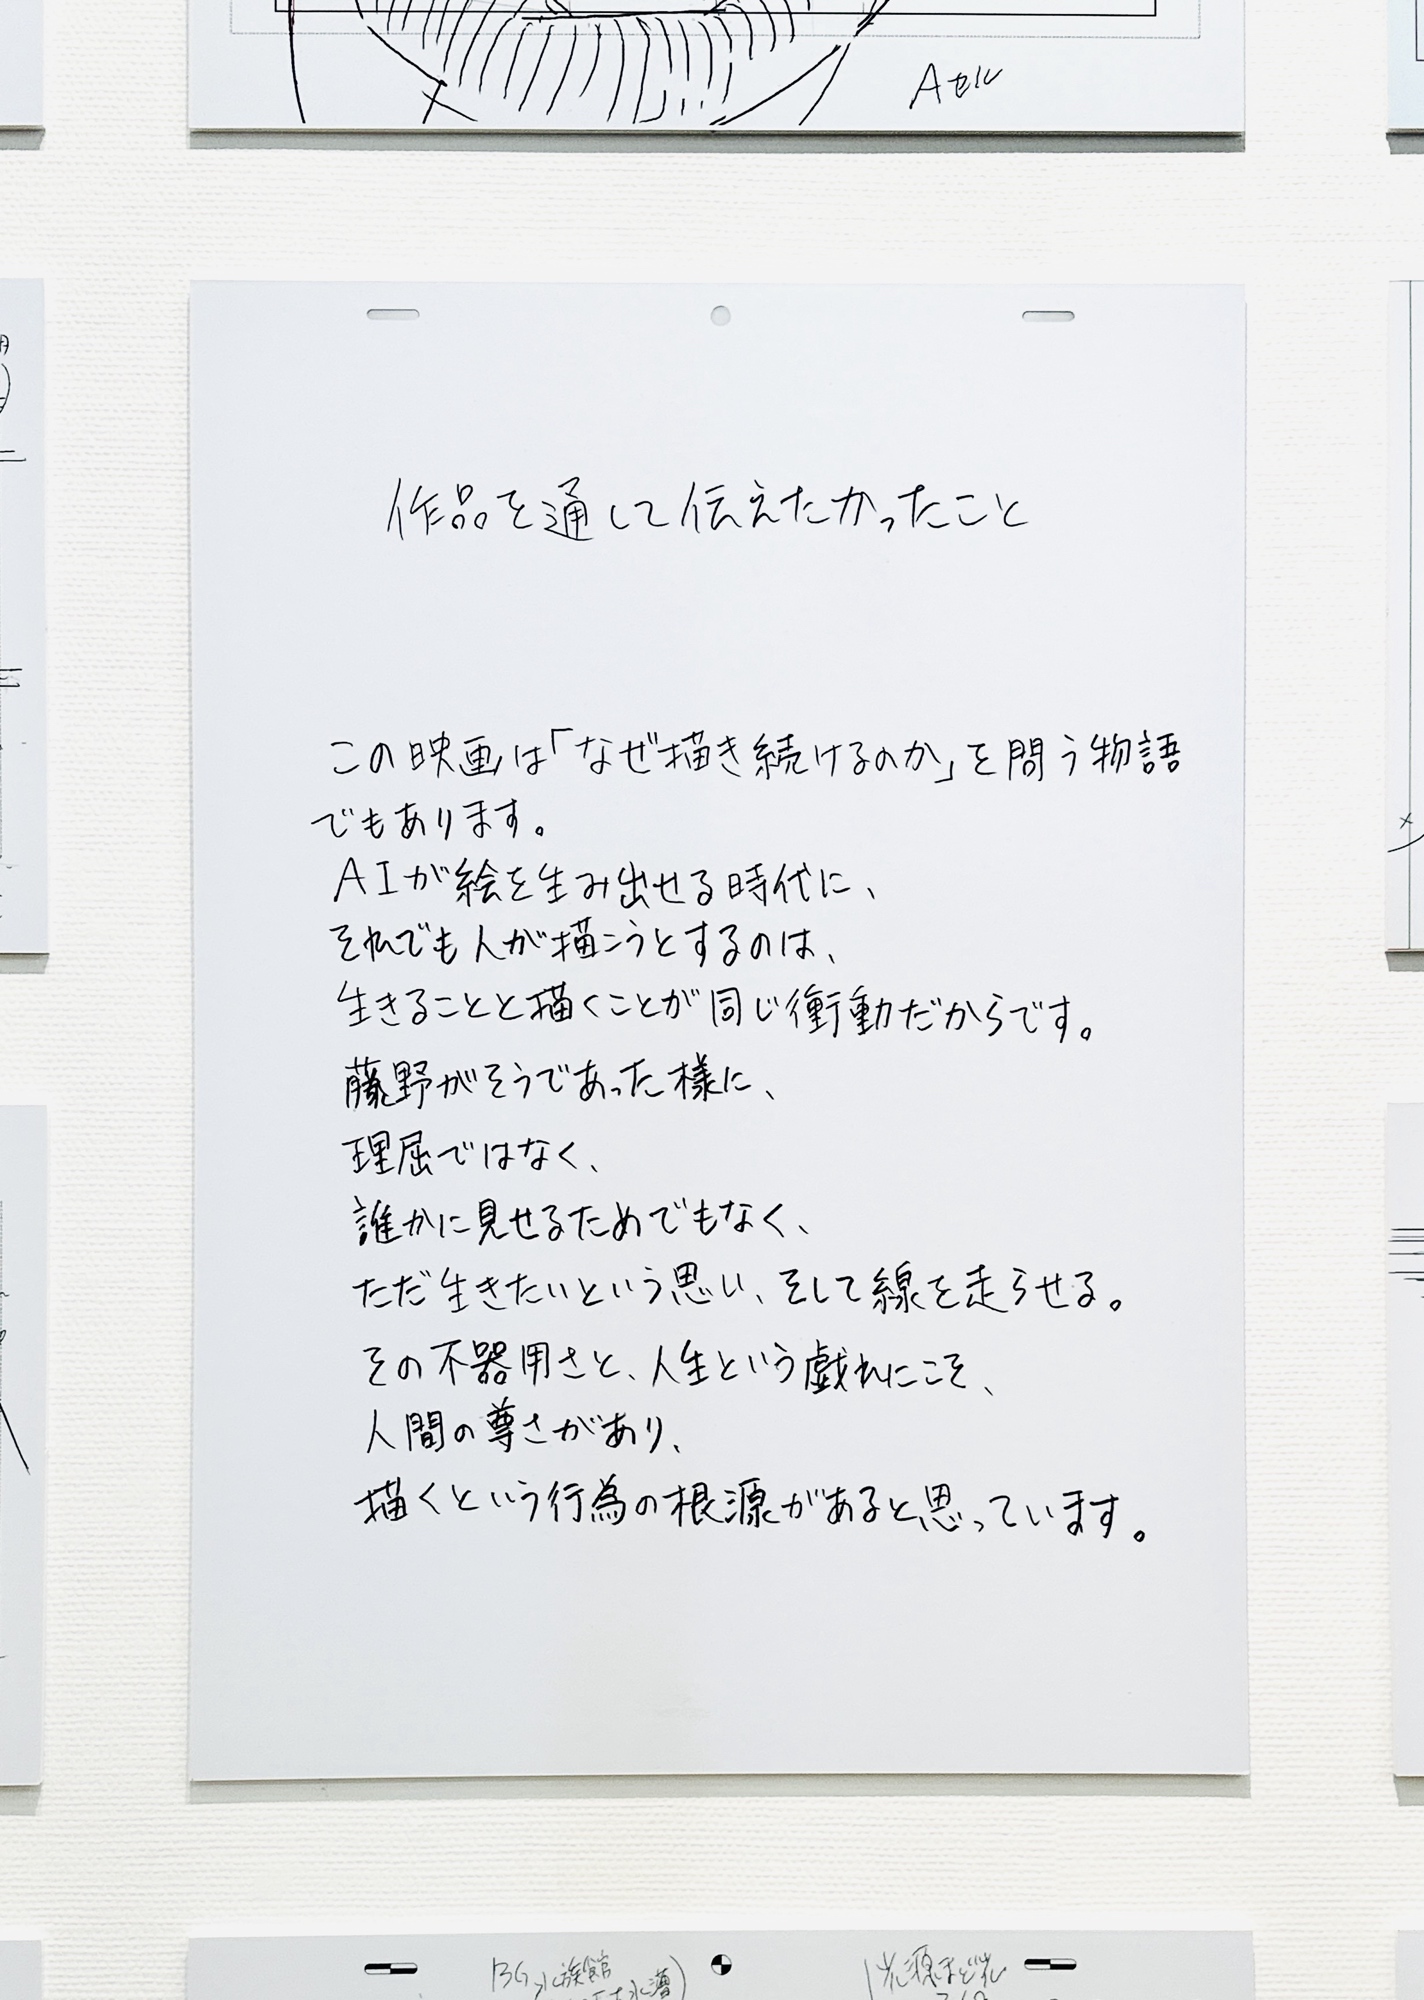 Aセル
作品を通して伝えたかったこと
この映画は「なぜ描き続けるのか」を問う物語
でもあります。
AIが絵を生み出せる時代に、
それでも人が描こうとするのは、
生きることと描くことが同じ衝動だからです。
藤野がそうであった様に、
理屈ではなく、
誰かに見せるためでもなく、
ただ生きたいという思い、そして線を走らせる。
その不器用さと、人生という戯れにこそ、
人間の尊さがあり、
描くという行為の根源があると思っています。
BG水族館